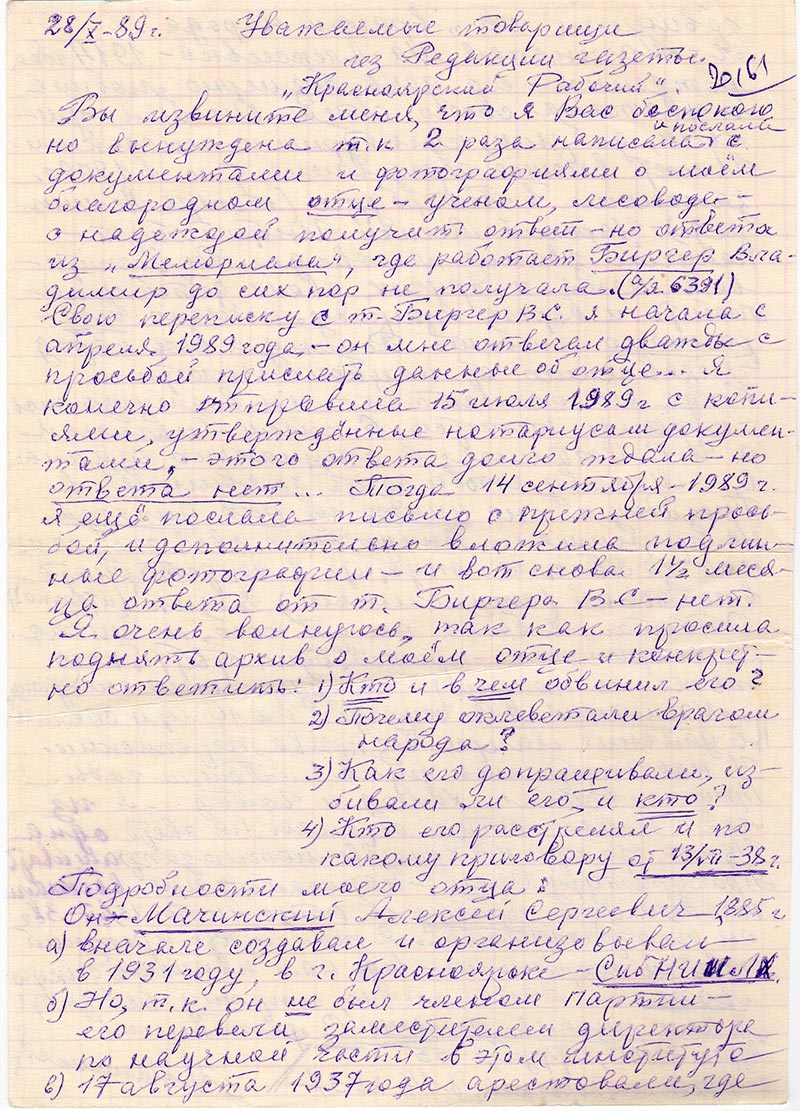 28/X-89г. Уважаемые товарищи
из Редакции газеты
„Красноярский Рабочий".
Вы извините меня, что я Вас беспокою
и послала
но вынуждена т.к 2 раза написала с
документами и фотографиями о моём
благородном отце – ученом, лесоводе –
с надеждой получить ответ – но ответа
из „Мемориала", где работает Биргер Вла-
димир до сих пор не получала. (а/я 6391)
Свою переписку с т. Биргер В.С. я начала с
апреля 1989 года – он мне отвечал дважды с
просьбой прислать данные об отце... Я
конечно отправила 15 июля 1989 г с копи-
ями, утверждённые нотариусом докумен-
тами, – этого ответа долго ждала – но
ответа нет... Тогда 14 сентября – 1989 г.
я ещё послала письмо с прежней прось-
бой, и дополнительно вложила подлин-
ные фотографии – и вот снова 1½ меся-
ца ответа от т. Биргера В.С – нет.
Я очень волнуюсь, так как просила
поднять архив о моём отце и конкрет-
но ответить: 1) Кто и в чем обвинил его?
2) Почему оклеветали врагом
народа?
3) Как его допрашивали, из-
бивали ли его, и кто?
4) Кто его расстрелял и по
какому приговору от 13/VII-38 г.
Подробности моего отца:
Он – Мачинский Алексей Сергеевич 1885 г
а) вначале создавал и организовывал
в 1931 году, в г. Красноярске – СибНИИЛХ.
б) Но, т.к. он не был членом Партии –
его перевели заместителем директора
по научной части в этом институте
в) 17 августа 1937 года арестовали, где